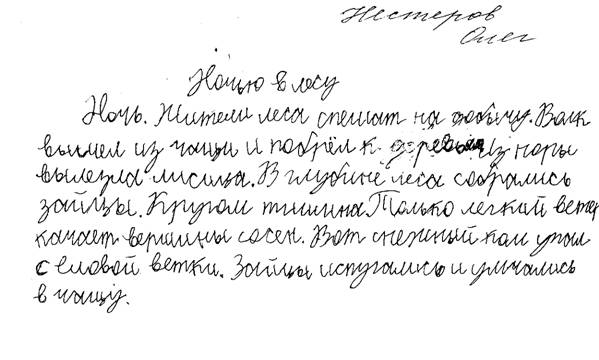 Нестеров
Олег
Ночью в лесу
Ночь. Жители леса спешат на добычу. Волк
вышел из чащи и побрёл к деревьям Из норы
вылезла лисица. В глубине леса собрались
зайцы. Кругом тишина Только легкий ветер
качает вершины сосен. Вот снежный ком упал
с еловой ветки. Зайцы испугались и умчались
в чащу.